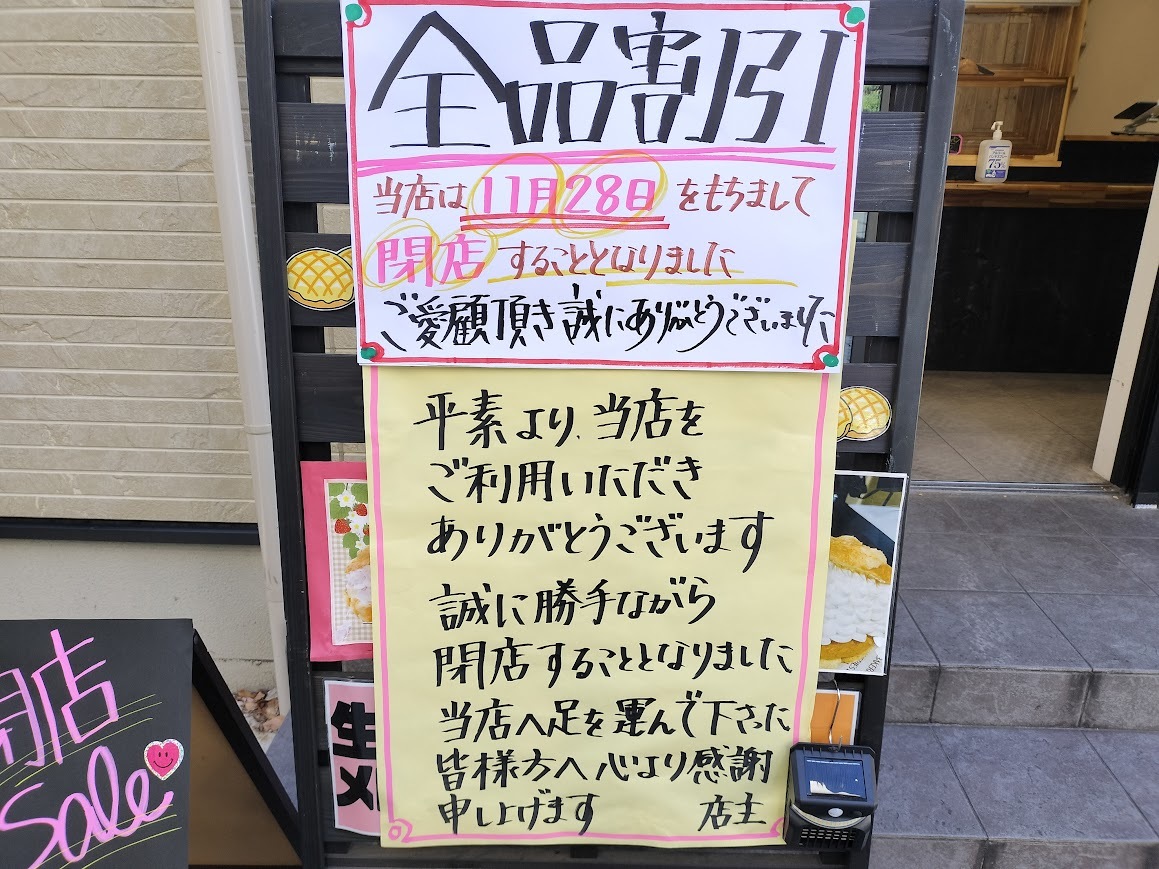 全品割引
当店は11月28日をもちまして
閉店することとなりました
ご愛顧頂き誠にありがとうございました
平素より、当店を
ご利用いただき
ありがとうございます
誠に勝手ながら
閉店することとなりました
当店へ足を運んで下さった
皆様方へ心より感謝
申し上げます 店主
閉店
Sale
生
メ
75%